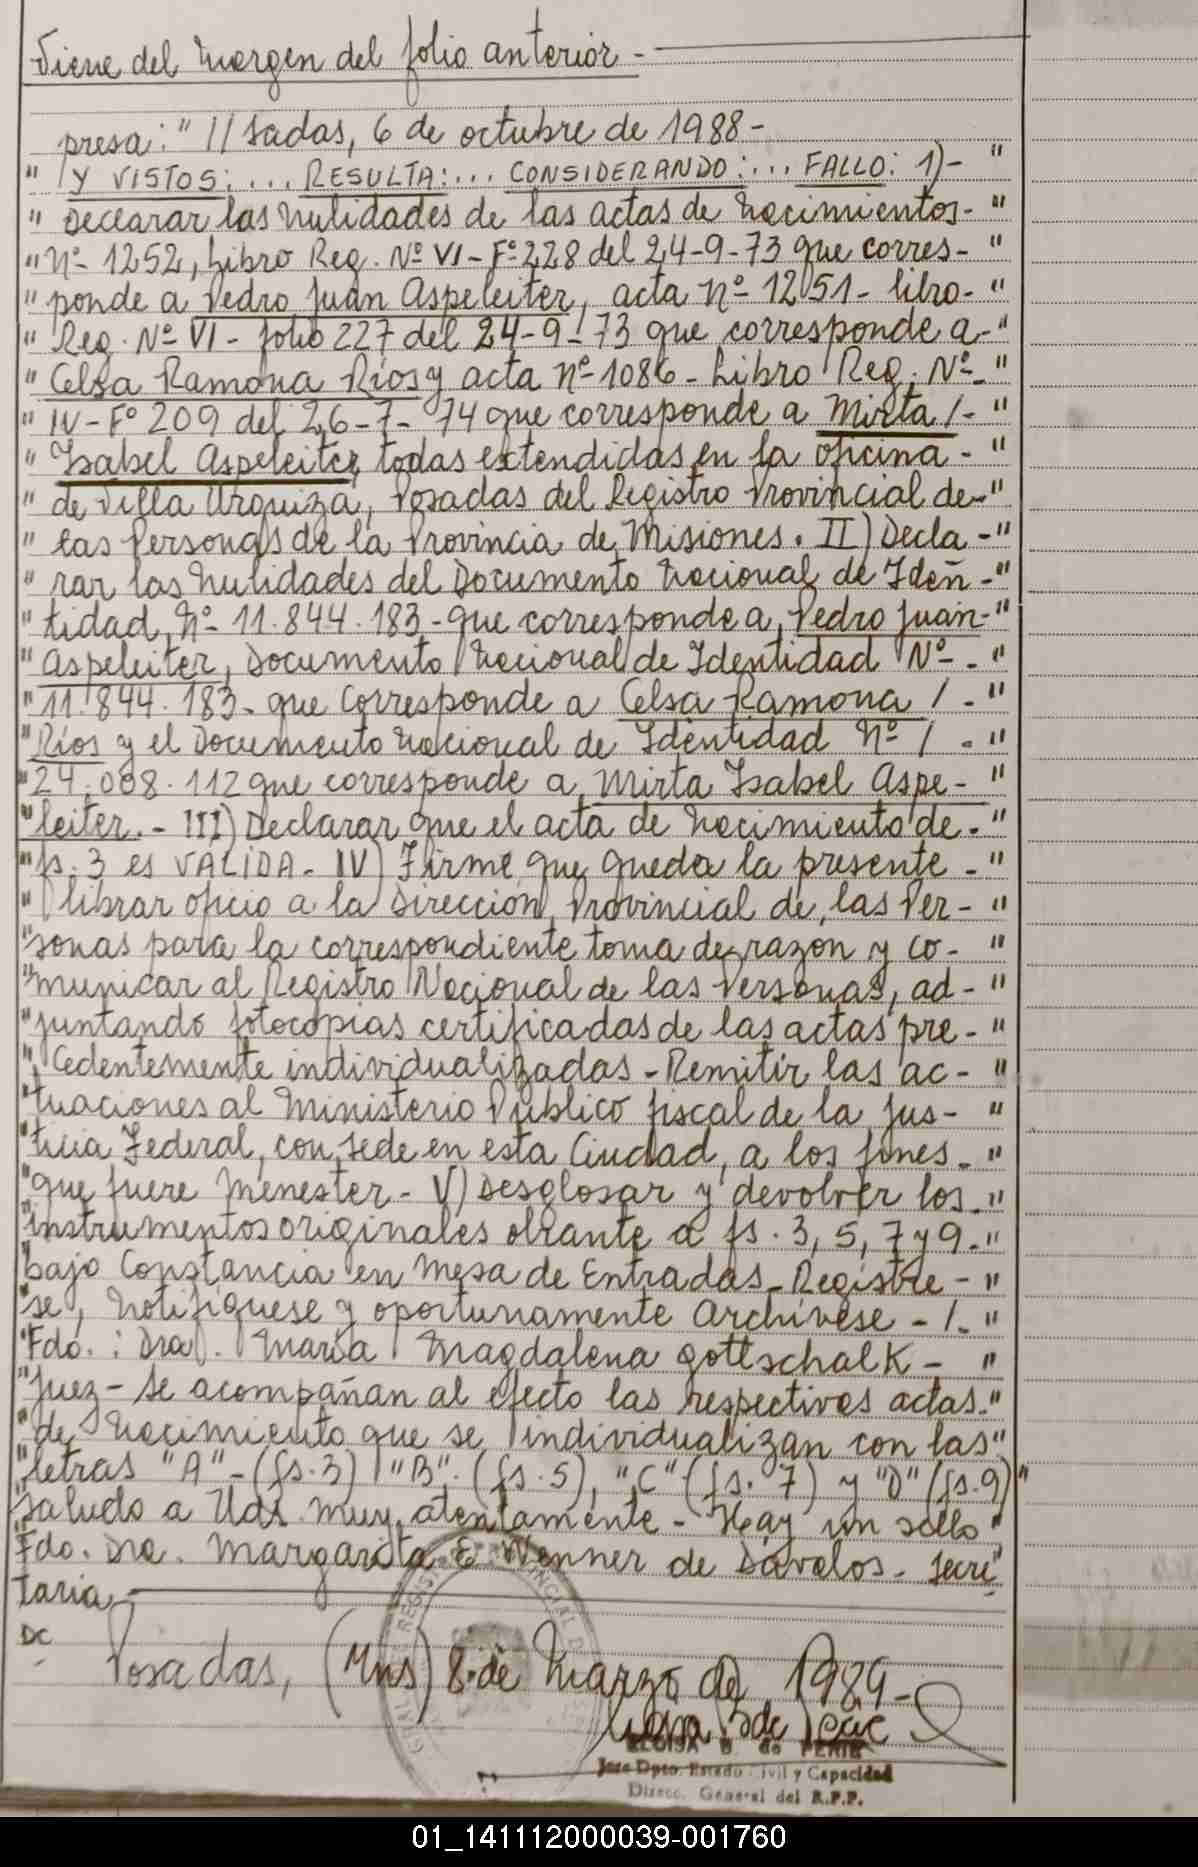 Viene del margen del folio anterior -
presa: " // sadas, 6 de octubre de 1988 -
" Y VISTOS: ... RESULTA: ... CONSIDERANDO: ... FALLO: 1) - "
" Declarar las nulidades de las actas de nacimientos - "
" nº 1252, Libro Reg. Nº VI - Fº 228 del 24-9-73 que corres - "
" ponde a Pedro Juan Aspeleiter, acta nº 1251 - libro - "
" Reg. Nº VI - folio 227 del 24-9-73 que corresponde a - "
" Celsa Ramona Ríos y acta nº 1086 - Libro Reg. Nº - "
" IV - Fº 209 del 26-7-74 que corresponde a Mirta / - "
" Isabel Aspeleiter, todas extendidas en la oficina - "
" de Villa Urquiza, Posadas del Registro Provincial de - "
" las Personas de la Provincia de Misiones. II) Decla - "
" rar las nulidades del Documento Nacional de Iden - "
" tidad, Nº 11.844.183 - que corresponde a Pedro Juan - "
" Aspeleiter, Documento Nacional de Identidad Nº - "
" 11.844.183 - que corresponde a Celsa Ramona / - "
" Ríos y el Documento Nacional de Identidad Nº / - "
" 24.008.112 que corresponde a Mirta Isabel Aspe - "
" leiter. - III) Declarar que el acta de nacimiento de - "
" fs. 3 es VALIDA - IV) Firme que queda la presente - "
" librar oficio a la Dirección Provincial de las Per - "
" sonas para la correspondiente toma de razon y co - "
" municar al Registro Nacional de las Personas, ad - "
" juntando fotocopias certificadas de las actas pre - "
" cedentemente individualizadas - Remitir las ac - "
" tuaciones al Ministerio Público fiscal de la Jus - "
" ticia Federal, con sede en esta Ciudad, a los fines - "
" que fuere menester - V) Desglosar y devolver los - "
" instrumentos originales obrante a fs. 3, 5, 7 y 9 - "
" bajo Constancia en Mesa de Entradas - Registre - "
" se, notifiquese y oportunamente Archívese - / - "
" Fdo.: Dra. María Magdalena Gottschalk - "
" Juez - Se acompañan al efecto las respectivas actas - "
" de nacimiento que se individualizan con las "
" letras "A" - (fs. 3) "B" - (fs. 5), "C" - (fs. 7) y "D" (fs. 9) "
Saludo a Uds. muy atentamente - Hay un sello "
Fdo. Dra. Margarita E. Wenner de Dávalos - Secre "
taria
DC
Posadas, (Mns) 8 de Marzo de 1989 -
ELOISA B de PERIE
Jefe Dpto. Estado Civil y Capacidad
Direcc. General del R.P.P.
01_141112000039-001760